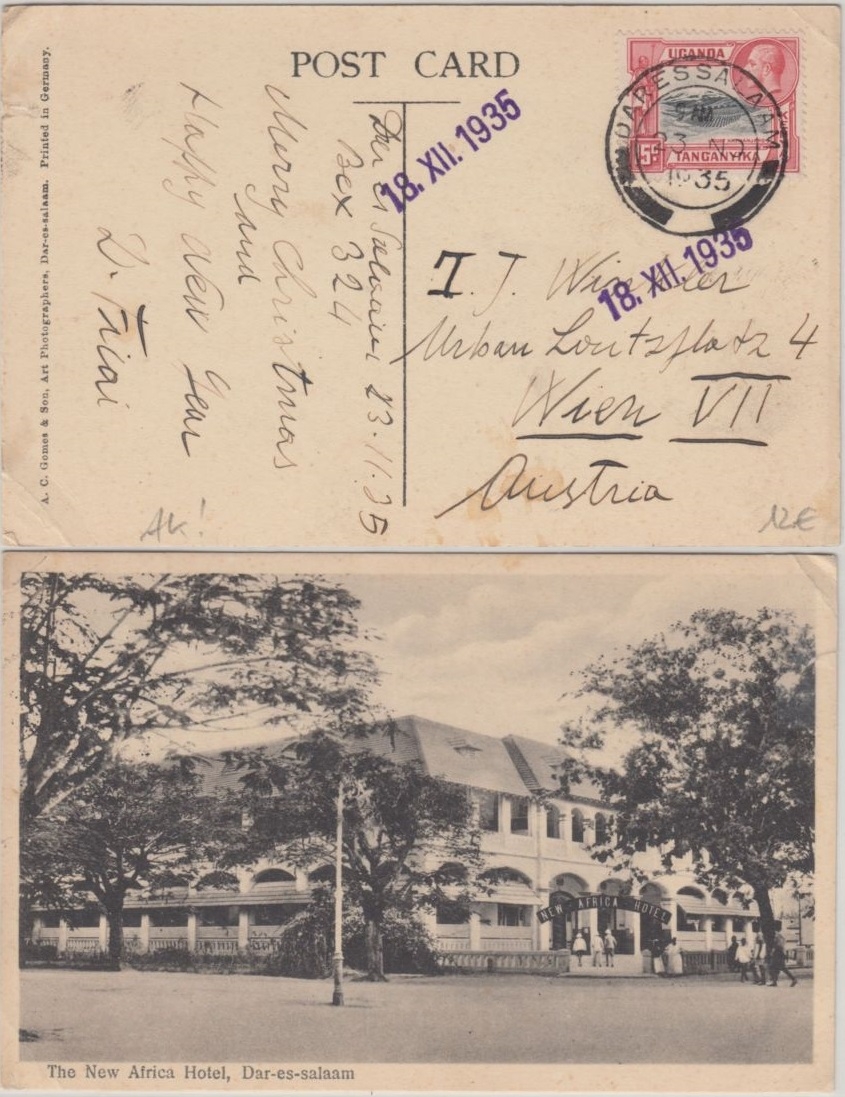 POST CARD
A. C. Gomes & Son, Art Photographers, Dar-es-salaam. Printed in Germany.
Dar es Salaam 23.11.35
Box 324
Merry Christmas
and
Happy New Year
D.
18. XII. 1935
UGANDA
5c
TANGANYIKA
DAR ES SALAAM
23 NO
1935
18. XII. 1935
I. J.
Urban Loritzplatz 4
Wien VII
Austria
AK!
12€
NEW AFRICA HOTEL
The New Africa Hotel, Dar-es-salaam